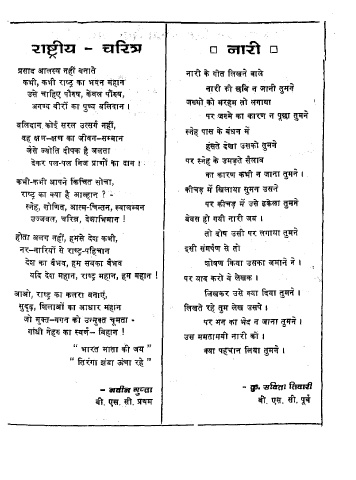 राष्ट्रीय - चरित्र
प्रसाद आलस्य नहीं बनाते
कभी, कभी राष्ट्र का भवन महान
उसे चाहिए पौरुष, केवल पौरुष,
अगण्य वीरों का पुण्य बलिदान।
बलिदान कोई सरल उत्सर्ग नहीं,
वह क्षण-क्षण का जीवन-सम्मान
जैसे ज्योति दीपक है जलता
देकर पल-पल निज प्राणों का दान।
कभी-कभी आपने किंचित सोचा,
राष्ट्र का क्या है आह्वान ? -
स्नेह, शोणित, आत्म-चिन्तन, स्वावलम्बन
उज्जवल, चरित्र, देशाभिमान!
होता अलग नहीं, हमसे देश कभी,
नर-नारियों से राष्ट्र-पहिचान
देश का वैभव, हम सबका वैभव
यदि देश महान, राष्ट्र महान, हम महान!
आओ, राष्ट्र का कलश बनाएं,
सुदृढ़, शिलाओं का आधार महान
जो मुक्त-गगन को उन्मुक्त चूमता -
गांधी नेहरू का स्वर्ण- विहान!
" भारत माता की जय "
" तिरंगा झंडा ऊंचा रहे "
- नवीन गुप्ता
बी. एस. सी. प्रथम
□ नारी □
नारी के गीत लिखने वाले
नारी की छवि न जानी तुमने
जख्मों को मरहम तो लगाया
पर जख्मे का कारण न पूछा तुमने
स्नेह पास के बंधन में
हंसते देखा उसको तुमने
पर स्नेह के उमड़ते सैलाब
का कारण कभी न जाना तुमने।
कीचड़ में खिलाया सुमन उसने
पर कीचड़ में उसे ढकेला तुमने
बेबस हो गयी नारी जब।
तो दोष उसी पर लगाया तुमने
इसी संघर्षण से तो
शोषण किया उसका जमाने ने।
पर याद करो ये लेखक।
लिखकर उसे क्या दिया तुमने।
लिखते रहे तुम लेख उसपे।
पर मन का भेद न जाना तुमने।
उस ममतामयी नारी को।
क्या पहचान लिया तुमने।
- कु. सविता तिवारी
बी. एस. सी. पूर्व